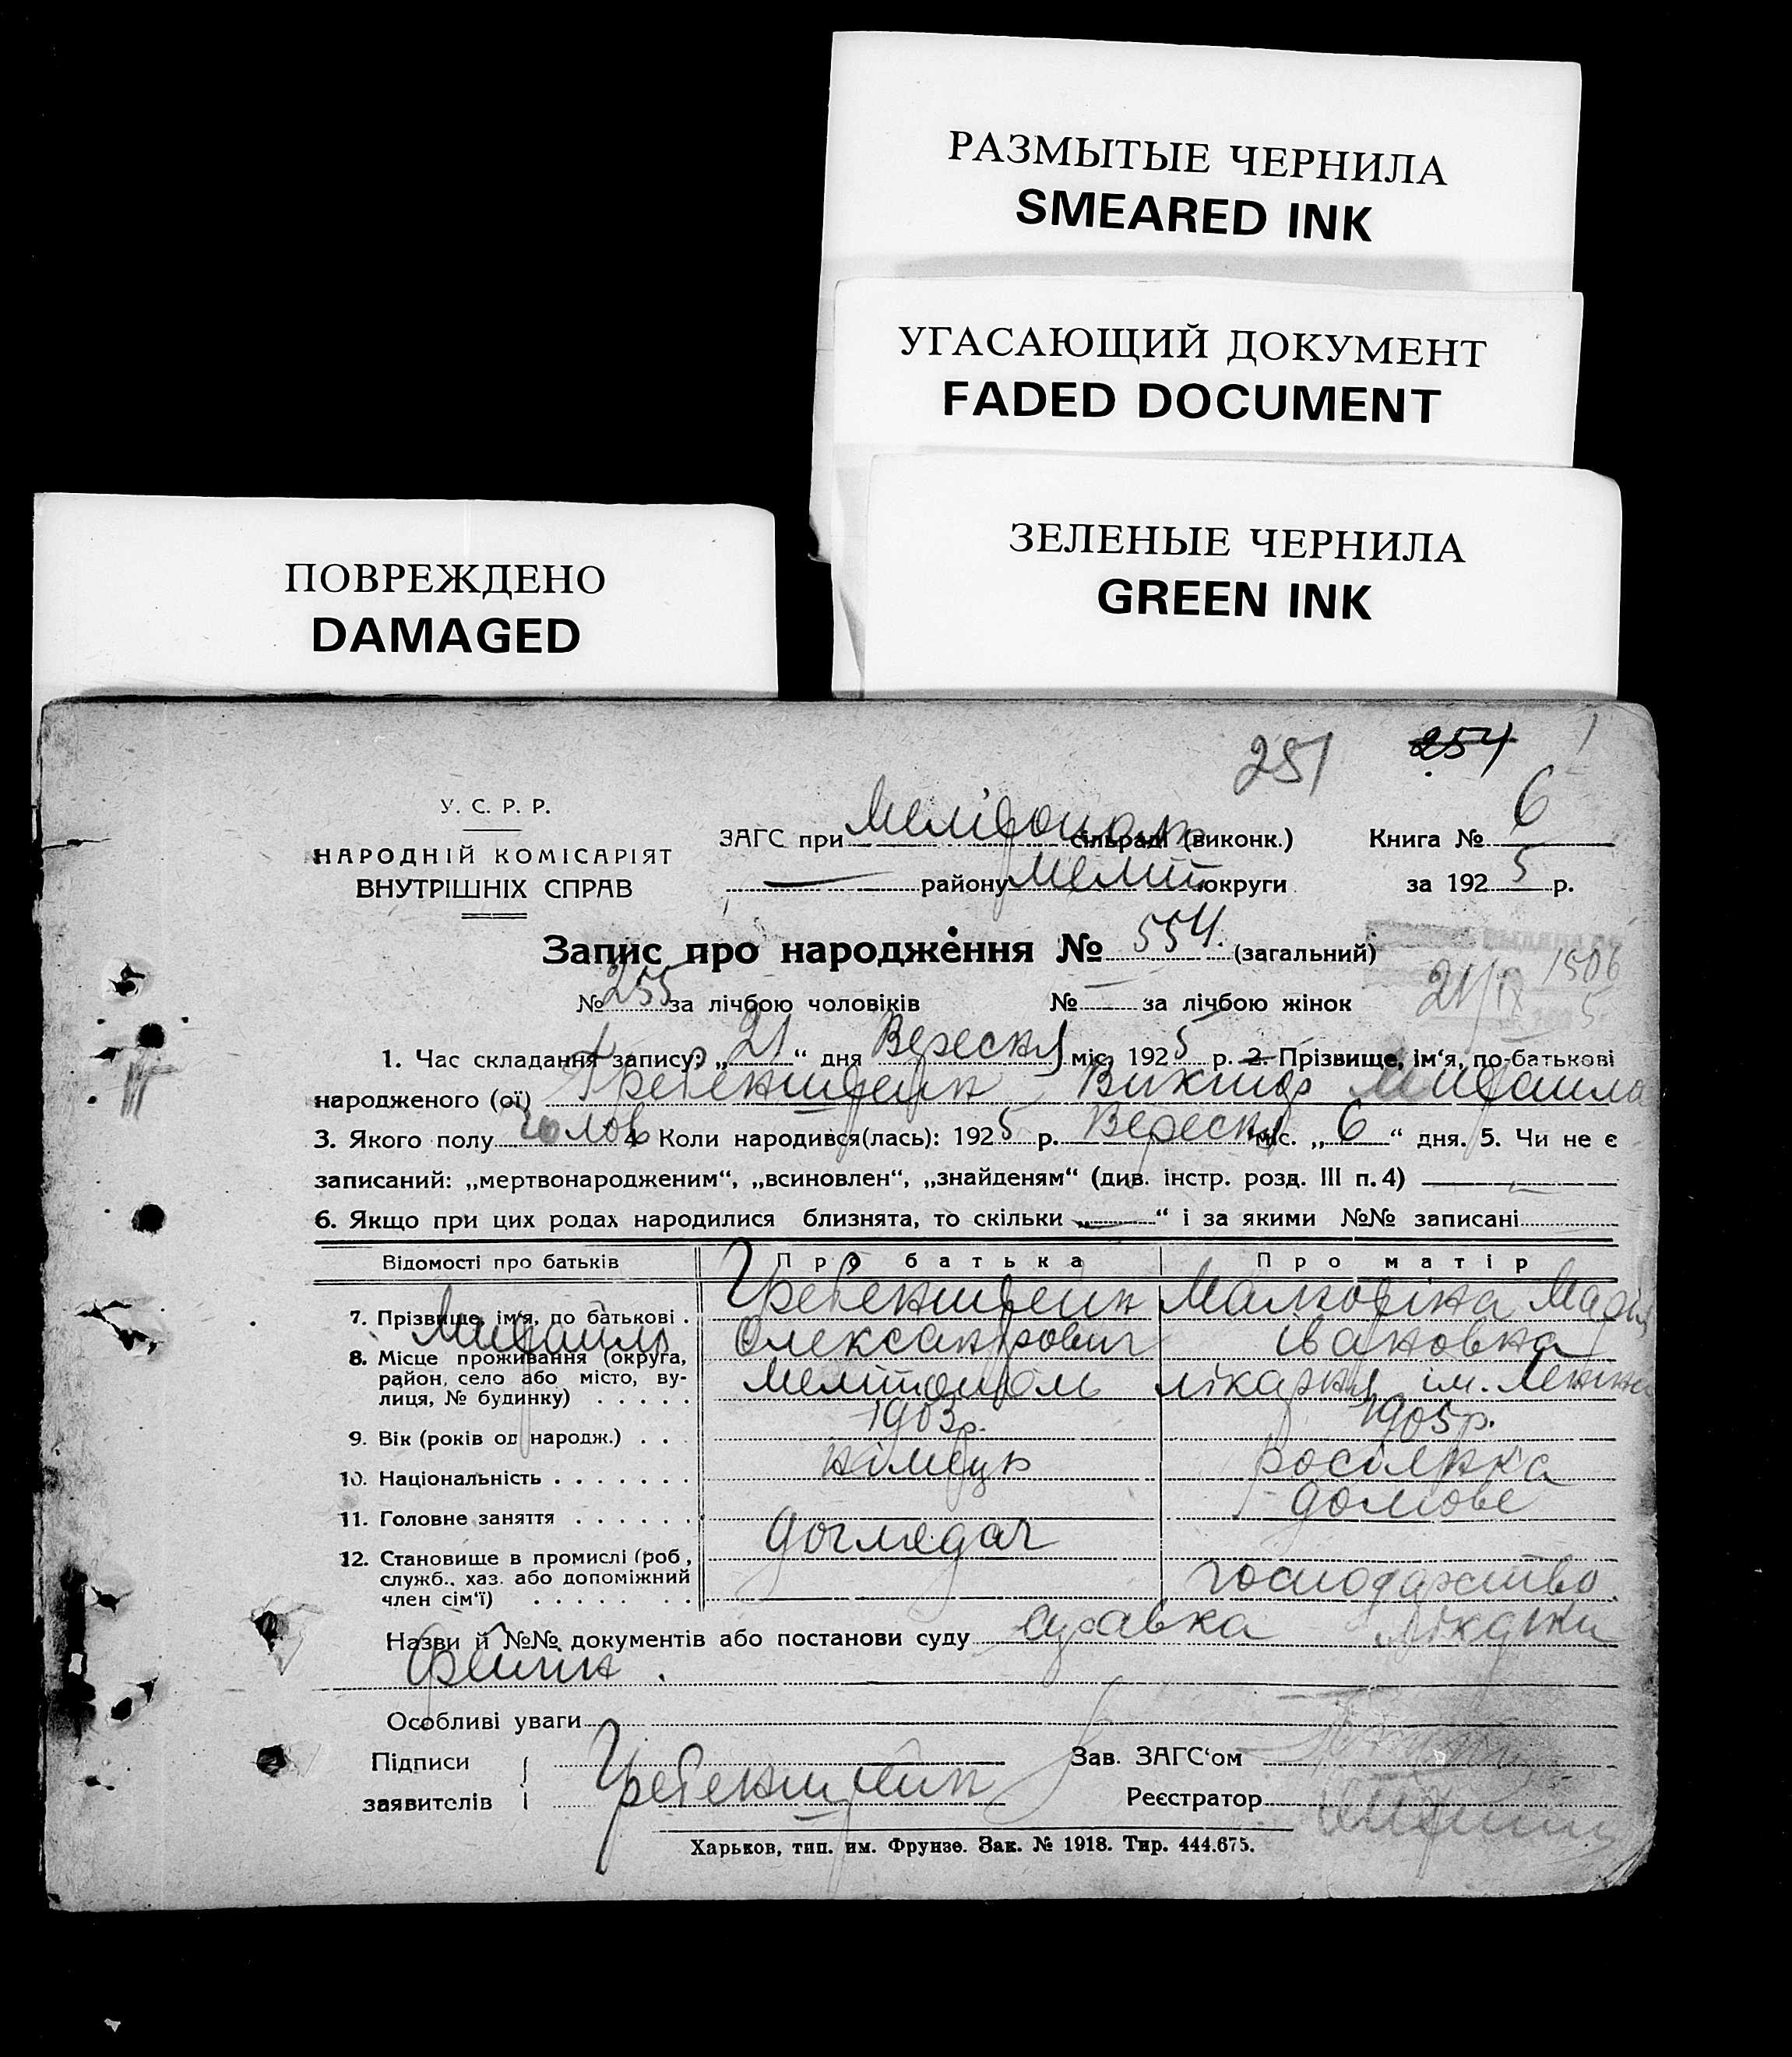 РАЗМЫТЫЕ ЧЕРНИЛА
SMEARED INK
УГАСАЮЩИЙ ДОКУМЕНТ
FADED DOCUMENT
ЗЕЛЕНЫЕ ЧЕРНИЛА
GREEN INK
ПОВРЕЖДЕНО
DAMAGED
251 254
У. С. Р. Р.
НАРОДНІЙ КОМІСАРІЯТ
ВНУТРІШНІХ СПРАВ
ЗАГС при сільраді (виконк.) Книга № 6
району Меліт округи за 1925 р.
Запис про народження № 554. (загальний)
№ 255 за лічбою чоловіків № — за лічбою жінок
21/IX 1506
5
1. Час складання запису: „21“ дня Вересня міс. 1925 р. 2. Прізвище, ім‘я, по-батькові
народженого (ої) Гребенштейн Виктор Михаила
3. Якого полу чолов 4. Коли народився(лась): 1925 р. Вересня міс. „6“ дня. 5. Чи не є
записаний: „мертвонародженим“, „всиновлен“, „знайденям“ (див. інстр. розд. III п. 4) —
6. Якщо при цих родах народилися близнята, то скільки „—“ і за якими №№ записані
Відомості про батьків Про батька Про матір
7. Прізвище, ім‘я, по батькові . Гребенштейн Марія
Михаиль Олександрович Івановна
8. Місце проживання (округа, район, село або місто, вулиця, № будинку) . . . . . Мелітополь лікарня ім. Леніна
9. Вік (років од народж.) . . . 1903 р. 1905 р.
10. Національність . . . . . . . німець росіянка
11. Головне заняття . . . . . . домове
12. Становище в промислі (роб., служб., хаз. або допоміжний член сім‘ї) . . . . . . . . доглядач господарство
Назви й №№ документів або постанови суду
Особливі уваги
Підписи Зав. ЗАГС‘ом
заявителів Гребенштейн Реєстратор
Харьков, тип. им. Фрунзе. Зак. № 1918. Тир. 444.675.